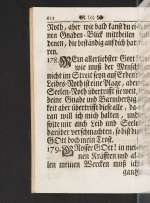 Noth, aber wie bald kanst du ei-
nen Gnaden-Blick mittheilen
denen, die beständig auf dich har-
ren.
178. Mein allerliebster Gott!
wie muß der Mensch
nicht im Streit seyn auf Erden?
Leibes-Noth ist eine Plage, aber
Seelen-Noth übertrifft sie weit,
deine Gnade und Barmhertzig-
keit aber übertrifft diese alle, da-
ran will ich mich halten, und
solte mir auch Leib und Seele
darüber verschmachten, so bist du
GOtt doch mein Trost.
179. Grosser GOtt! in mei-
nen Kräfften und al-
len meinen Wercken muß ich